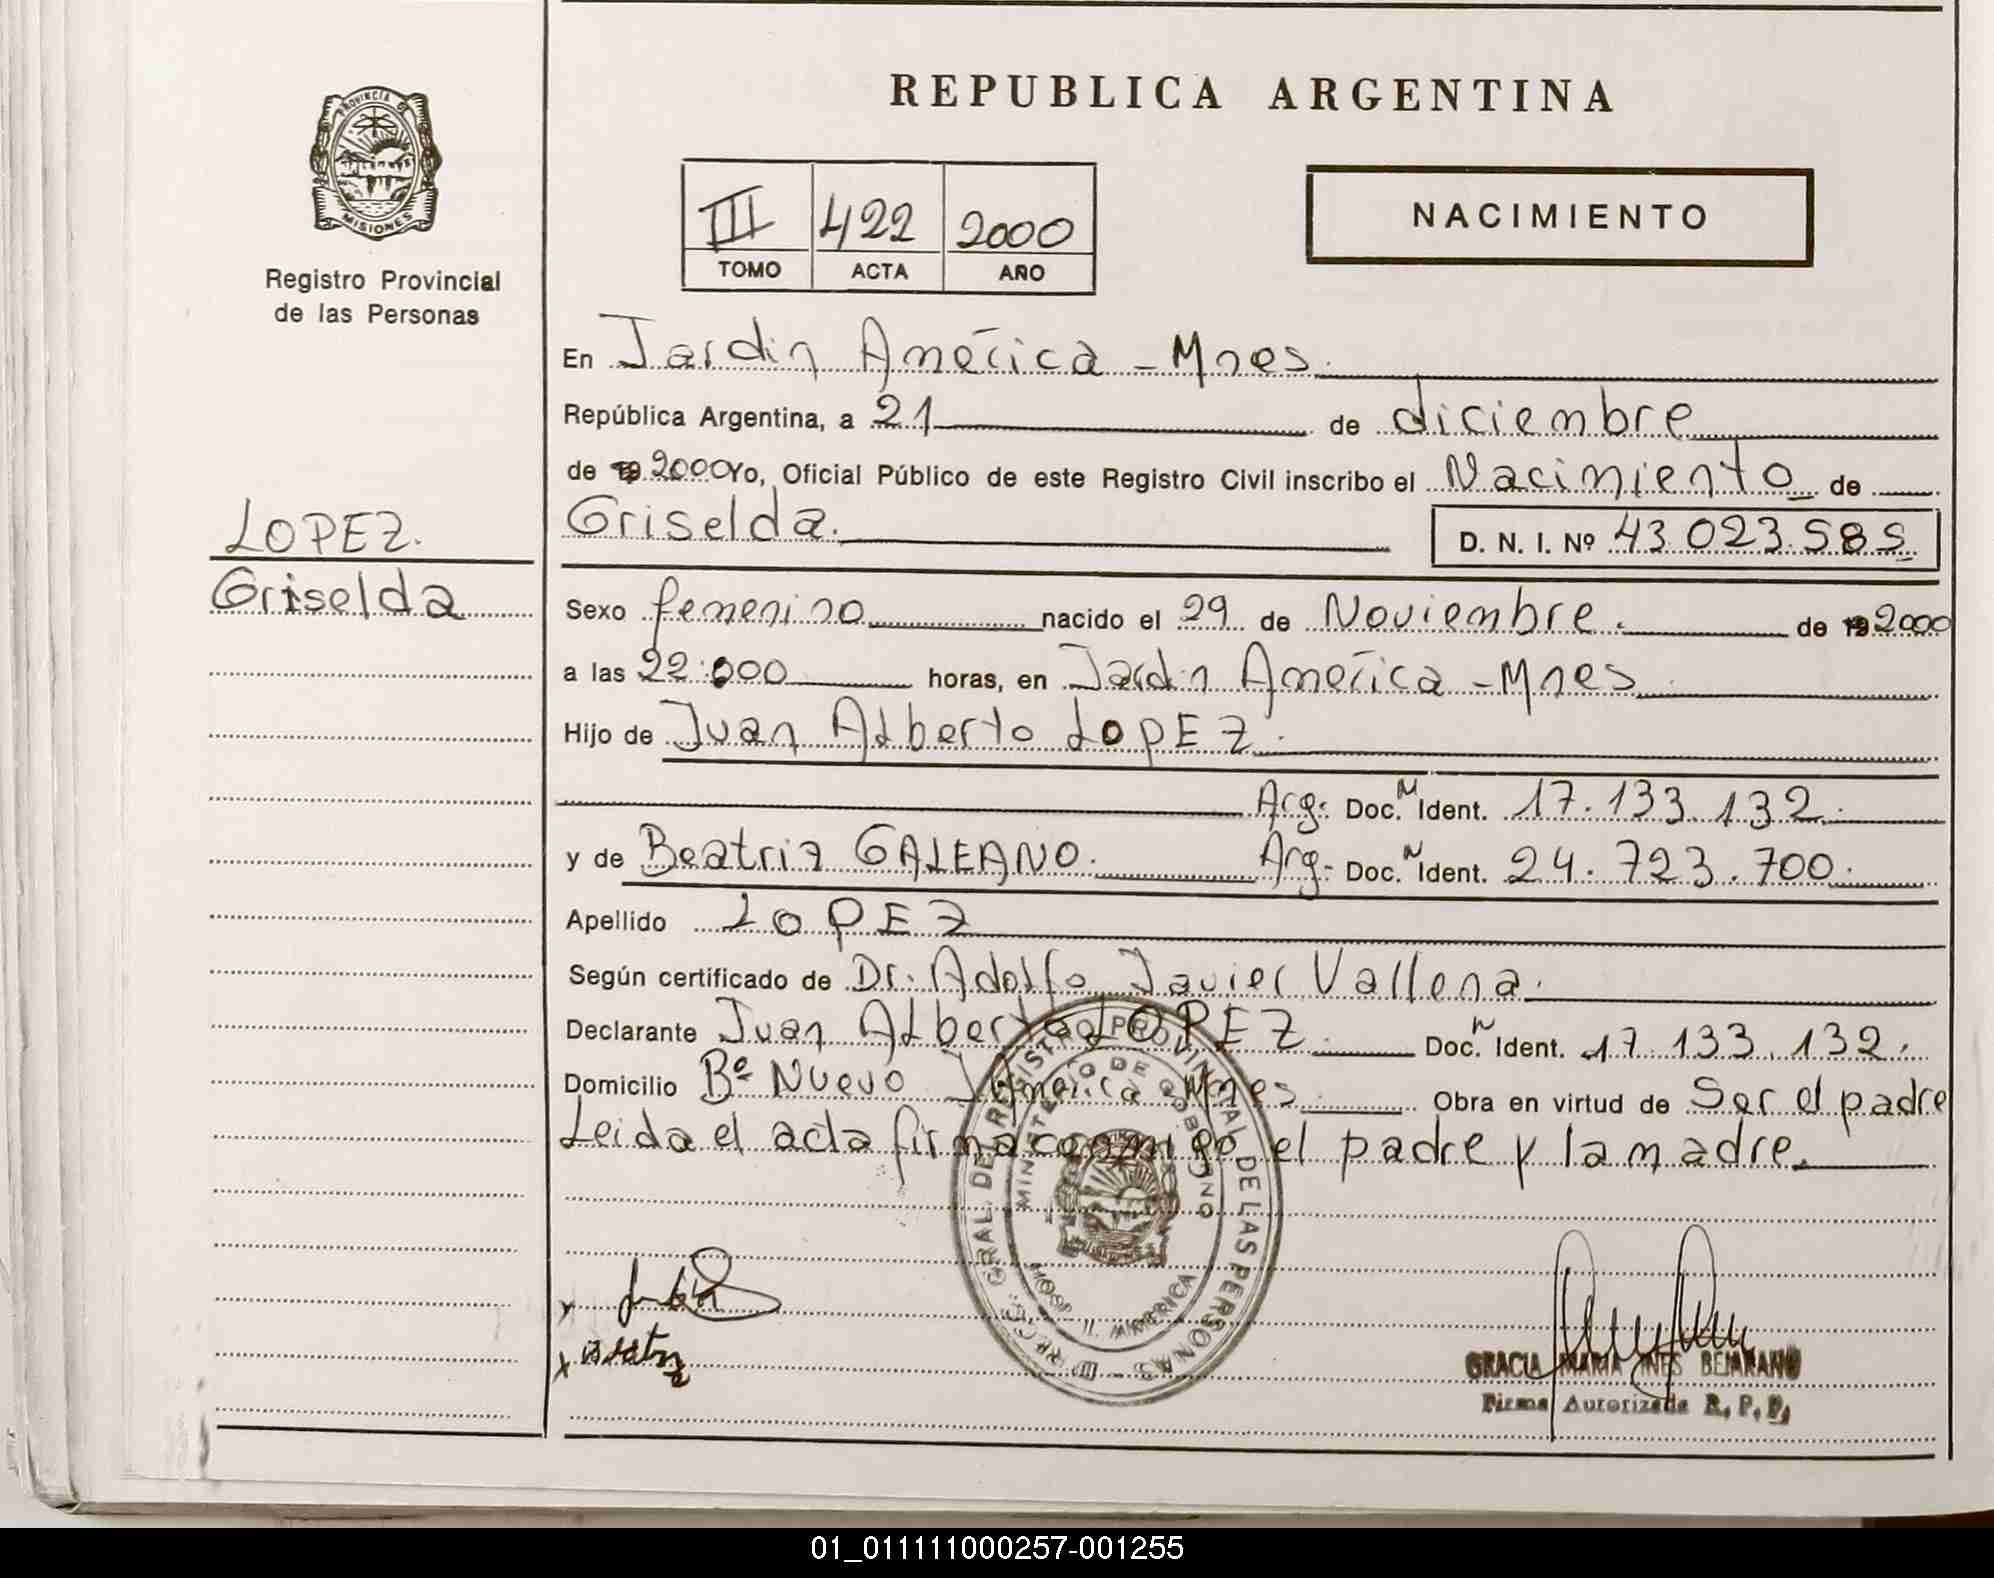 REPUBLICA ARGENTINA
PROVINCIA DE
MISIONES
Registro Provincial
de las Personas
III 422 2000
TOMO ACTA AÑO
NACIMIENTO
En Jardin América - Mnes.
República Argentina, a 21 de diciembre
de 19 2000 Yo, Oficial Público de este Registro Civil inscribo el Nacimiento de
LOPEZ.
Griselda
Griselda.
D. N. I. Nº 43.023.585
Sexo femenino nacido el 29 de Noviembre. de 19 2000
a las 22:000 horas, en Jardin América - Mnes
Hijo de Juan Alberto LopEZ.
Arg: Doc. N Ident. 17.133.132.
y de Beatriz GALEANO. Arg- Doc. N Ident. 24.723.700.
Apellido LOPEZ
Según certificado de Dr. Adolfo Javier Vallena.
Declarante Juan Alberto LOPEZ. Doc. N Ident. 17.133.132.
Domicilio Bº Nuevo J. América Mnes Obra en virtud de Ser el padre
Leida el acta firma conmigo el padre y la madre.
GRAL. DE REGISTRO PROVINCIAL DE LAS PERSONAS
MINISTERIO DE GOBIERNO
HOSP. J. AMERICA
x
x Beatriz
GRACIA MARIA INES BEJARANO
Firma Autorizada R. P. P.
01_011111000257-001255